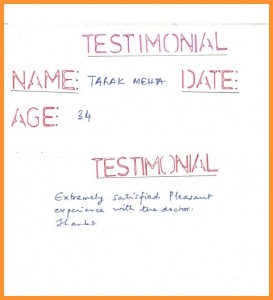 TESTIMONIAL
NAME: TARAK MEHTA DATE:
AGE: 34
TESTIMONIAL
Extremely satisfied. Pleasant
experience with the doctor.
Thanks.